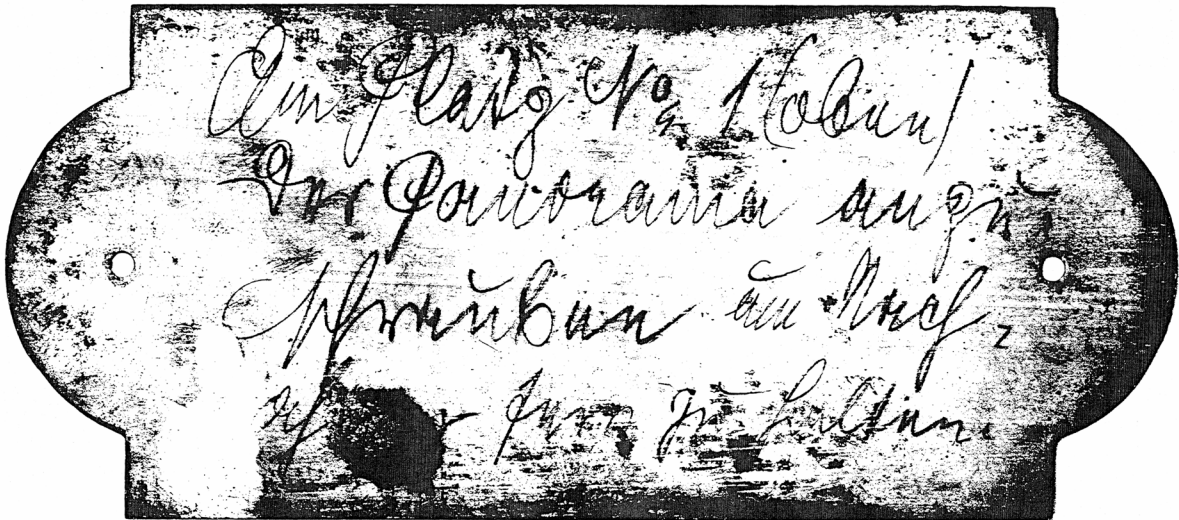 Am Platz No 1 (oben)
Der Panorama anzu-
schrauben um Nach-
fern zu halten.